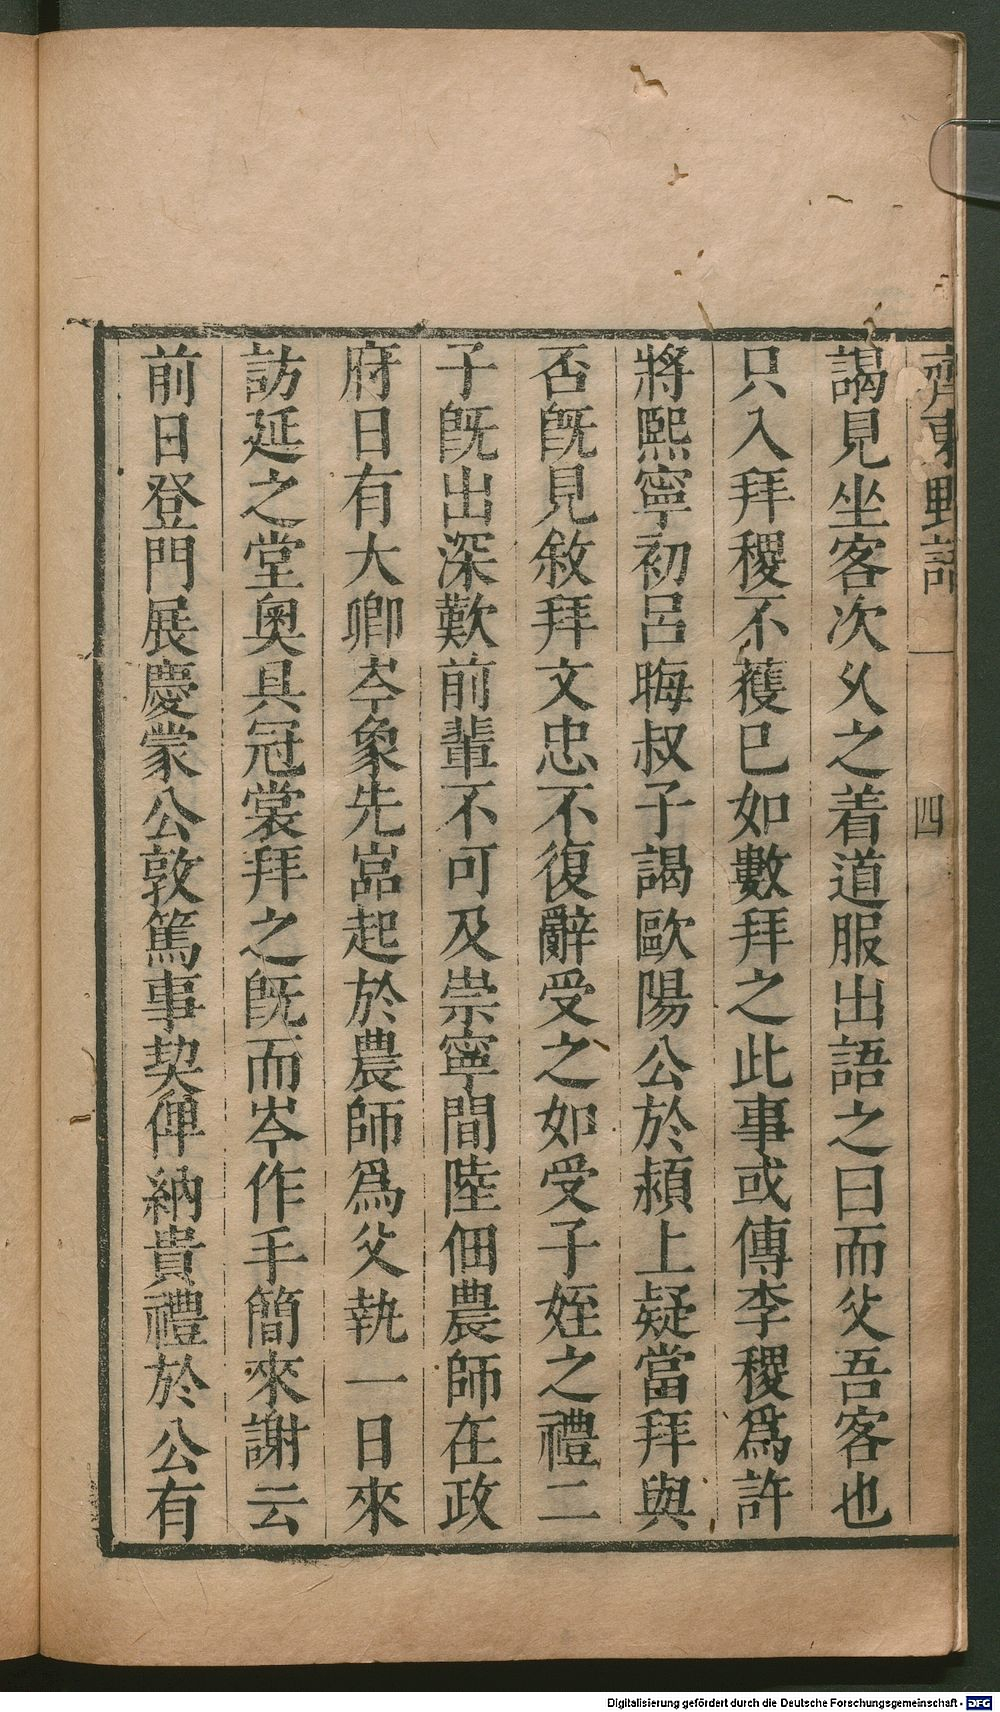 齊東野語 四
謁見坐客次乆之着道服出語之曰而父吾客也
只入拜稷不蒦已如數拜之此事或傳李稷爲許
將熙寧初呂晦叔子謁歐陽公於潁上疑當拜與
否旣見敘拜文忠不復辭受之如受子姪之禮二
子旣出深歎前輩不可及崇寧間陸佃農師在政
府日有大卿岑象先嵓起於農師爲父執一日來
訪延之堂奥具冠裳拜之旣而岑作手簡來謝云
前日登門展慶蒙公敦篤事契俾納貴禮於公有
Digitalisierung gefördert durch die Deutsche Forschungsgemeinschaft - DFG